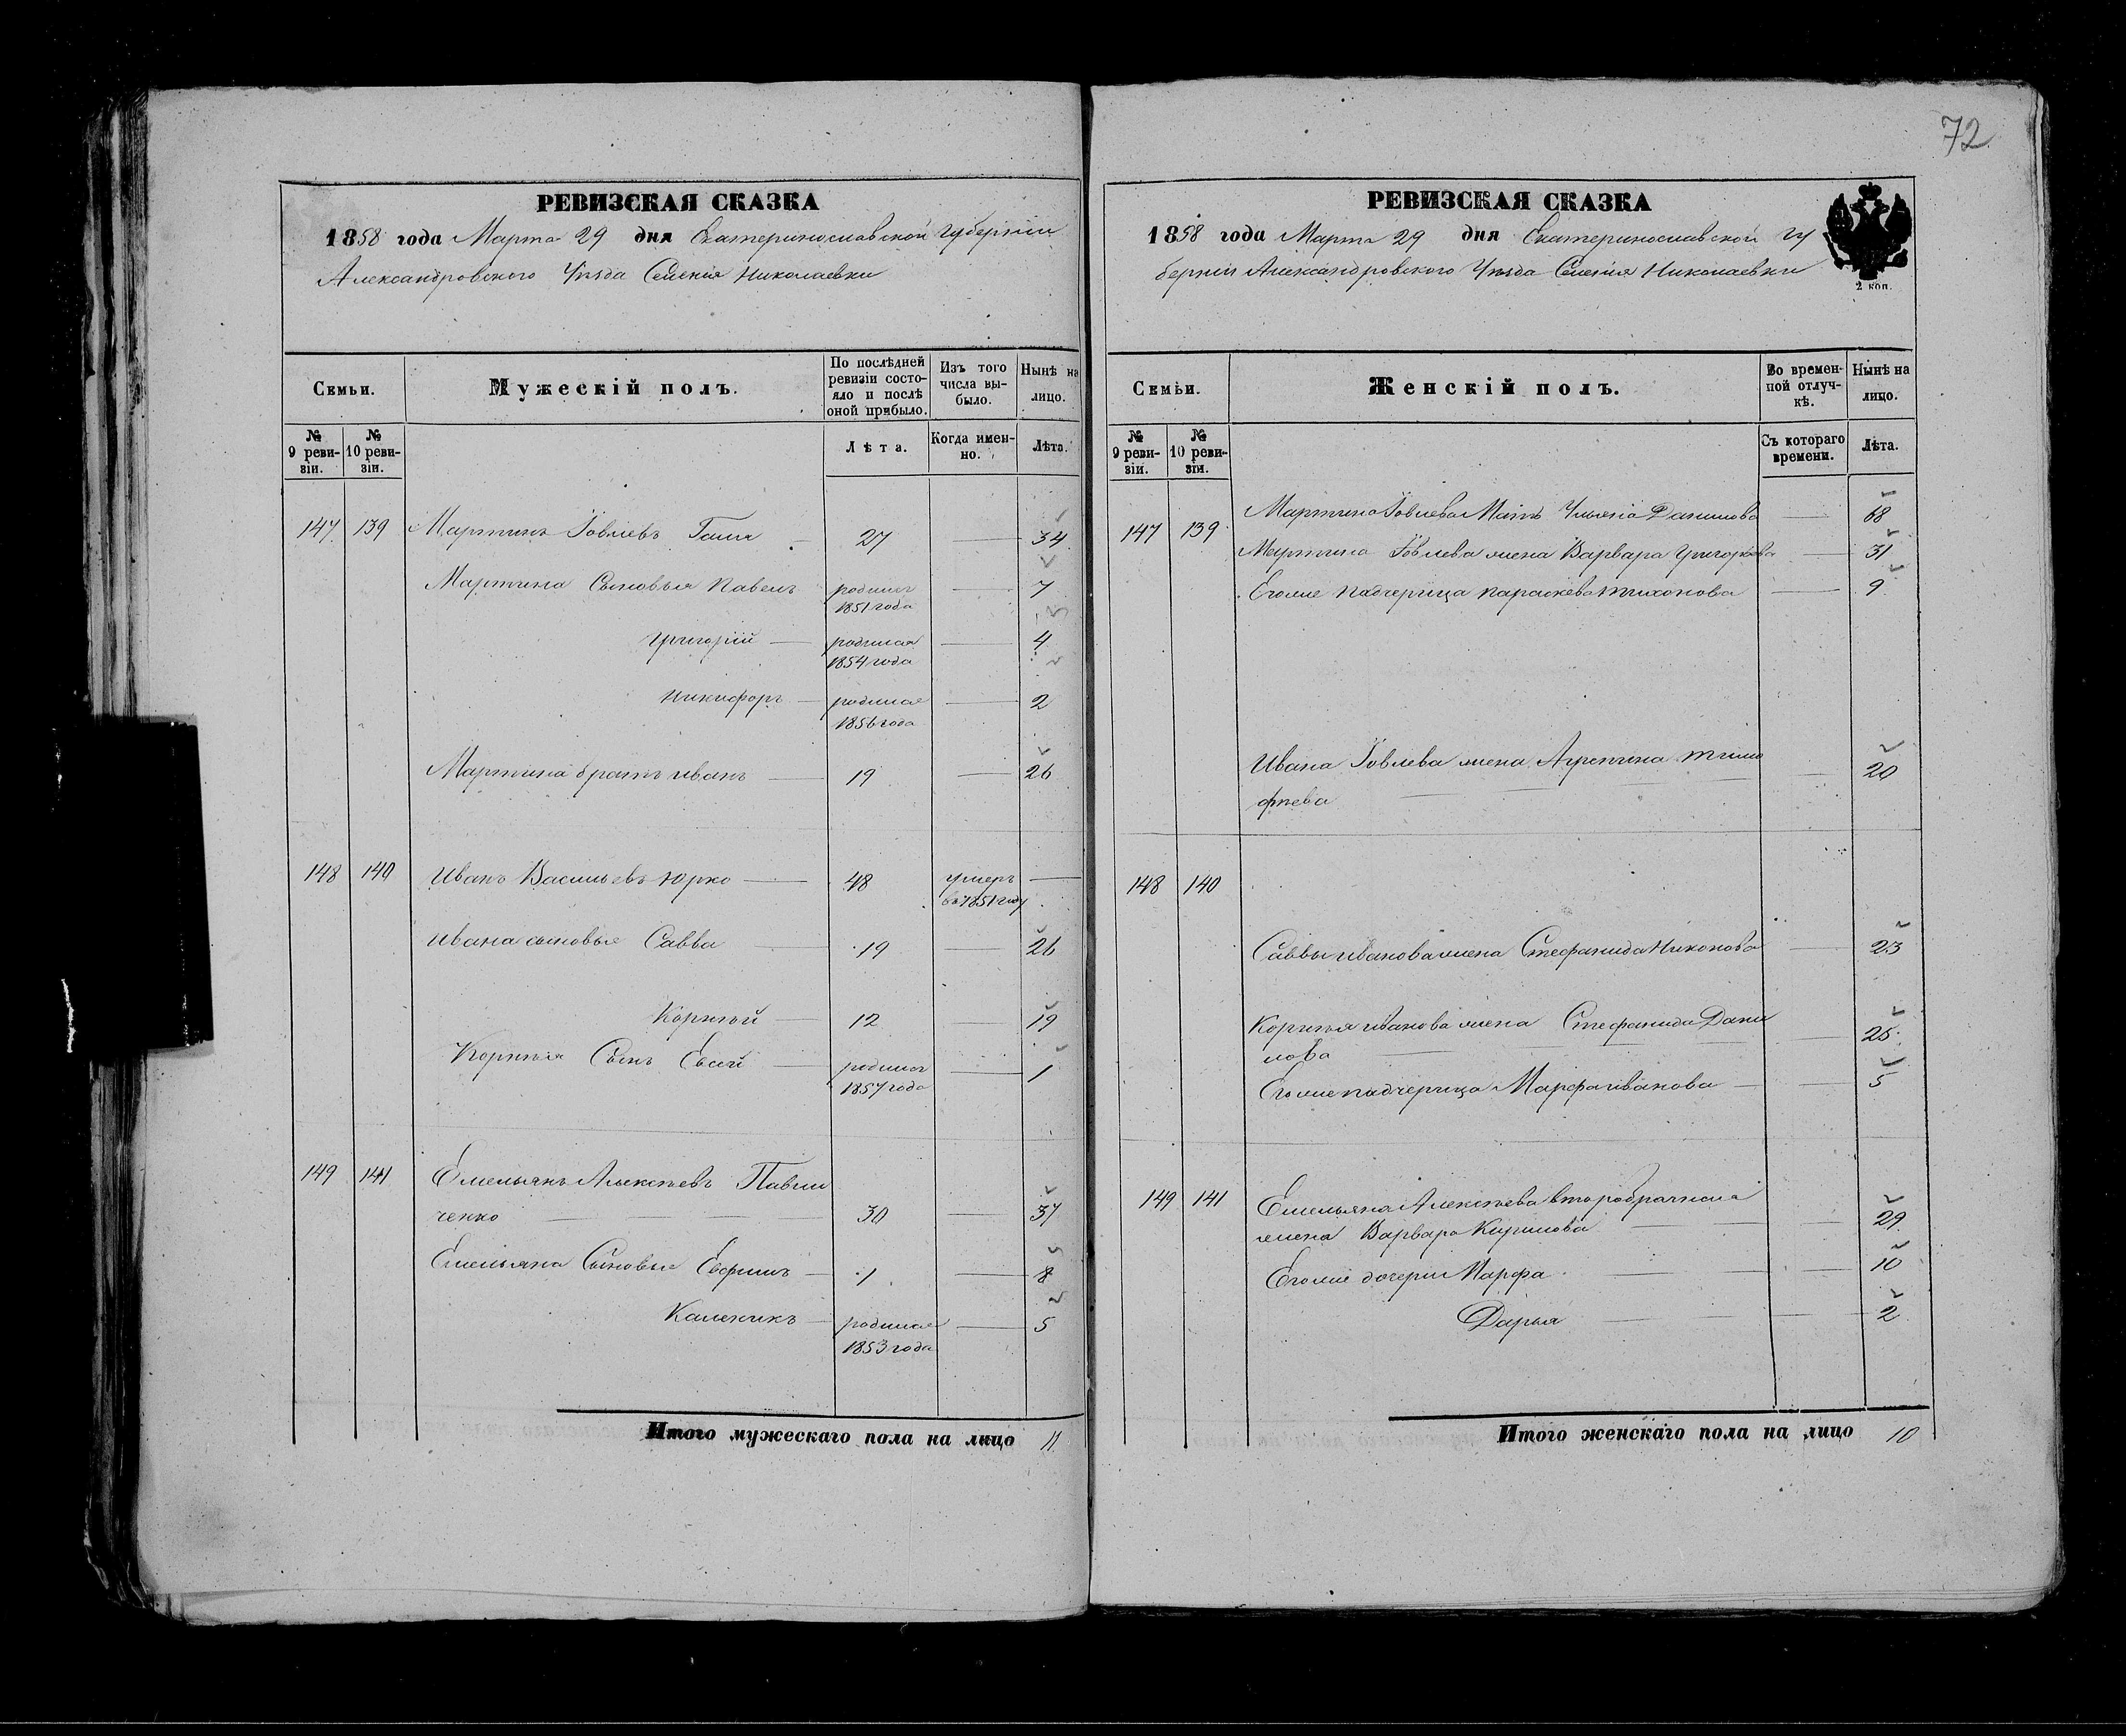 72
РЕВИЗСКАЯ СКАЗКА
1858 года Марта 29 дня Екатеринославской Губерніи
Александровского Уѣзда Селенія Николаевки
Семьи.
Мужескій полъ.
По послѣдней ревизіи состояло и послѣ оной прибыло.
Изъ того числа выбыло.
Нынѣ на лицо.
№ 9 ревизіи.
№ 10 ревизіи.
Лѣта.
Когда именно.
Лѣта.
147 139 Мартинъ Іовлевъ 27 34
Мартина Сыновья Павелъ родился 1851 года 7
Григорій родился 1854 года 4
Никифоръ родился 1856 года 2
Мартина братъ Иванъ 19 26
148 140 Иванъ Васильевъ Юрко 48 умеръ въ 1851 году
Ивана сыновья Савва 19 26
Корнѣй 12 19
Корнѣя Сынъ Евсей родился 1857 года 1
149 141 Емельянъ Алексѣевъ Павли
ченко 30 37
Емельяна Сыновья Евфимъ 1 8
Каленикъ родился 1853 года 5
Итого мужескаго пола на лицо 11
РЕВИЗСКАЯ СКАЗКА
1858 года Марта 29 дня Екатеринославской Гу
берніи Александровского Уѣзда Селенія Николаевки
2 коп.
Семьи.
Женскій полъ.
Во временной отлучкѣ.
Нынѣ на лицо.
№ 9 ревизіи.
№ 10 ревизіи.
Съ котораго времени.
Лѣта.
147 139 Мартина Іовлева Мать Ульянія Данилова 68
Мартина Іовлева жена Варвара Григорьева 31
Егоже падчерица Параскева Тихонова 9
Ивана Іовлева жена Агрепина Тимо
фѣева 20
148 140
Саввы Иванова жена Стефанида Никонова 23
Корнѣя Иванова жена Стефанида Дани
лова 25
Егоже падчерица Марфа Иванова 5
149 141 Емельяна Алексѣева второбрачная
жена Варвара Кирилова 29
Егоже дочери Марфа 10
Дарья 2
Итого женскаго пола на лицо 10